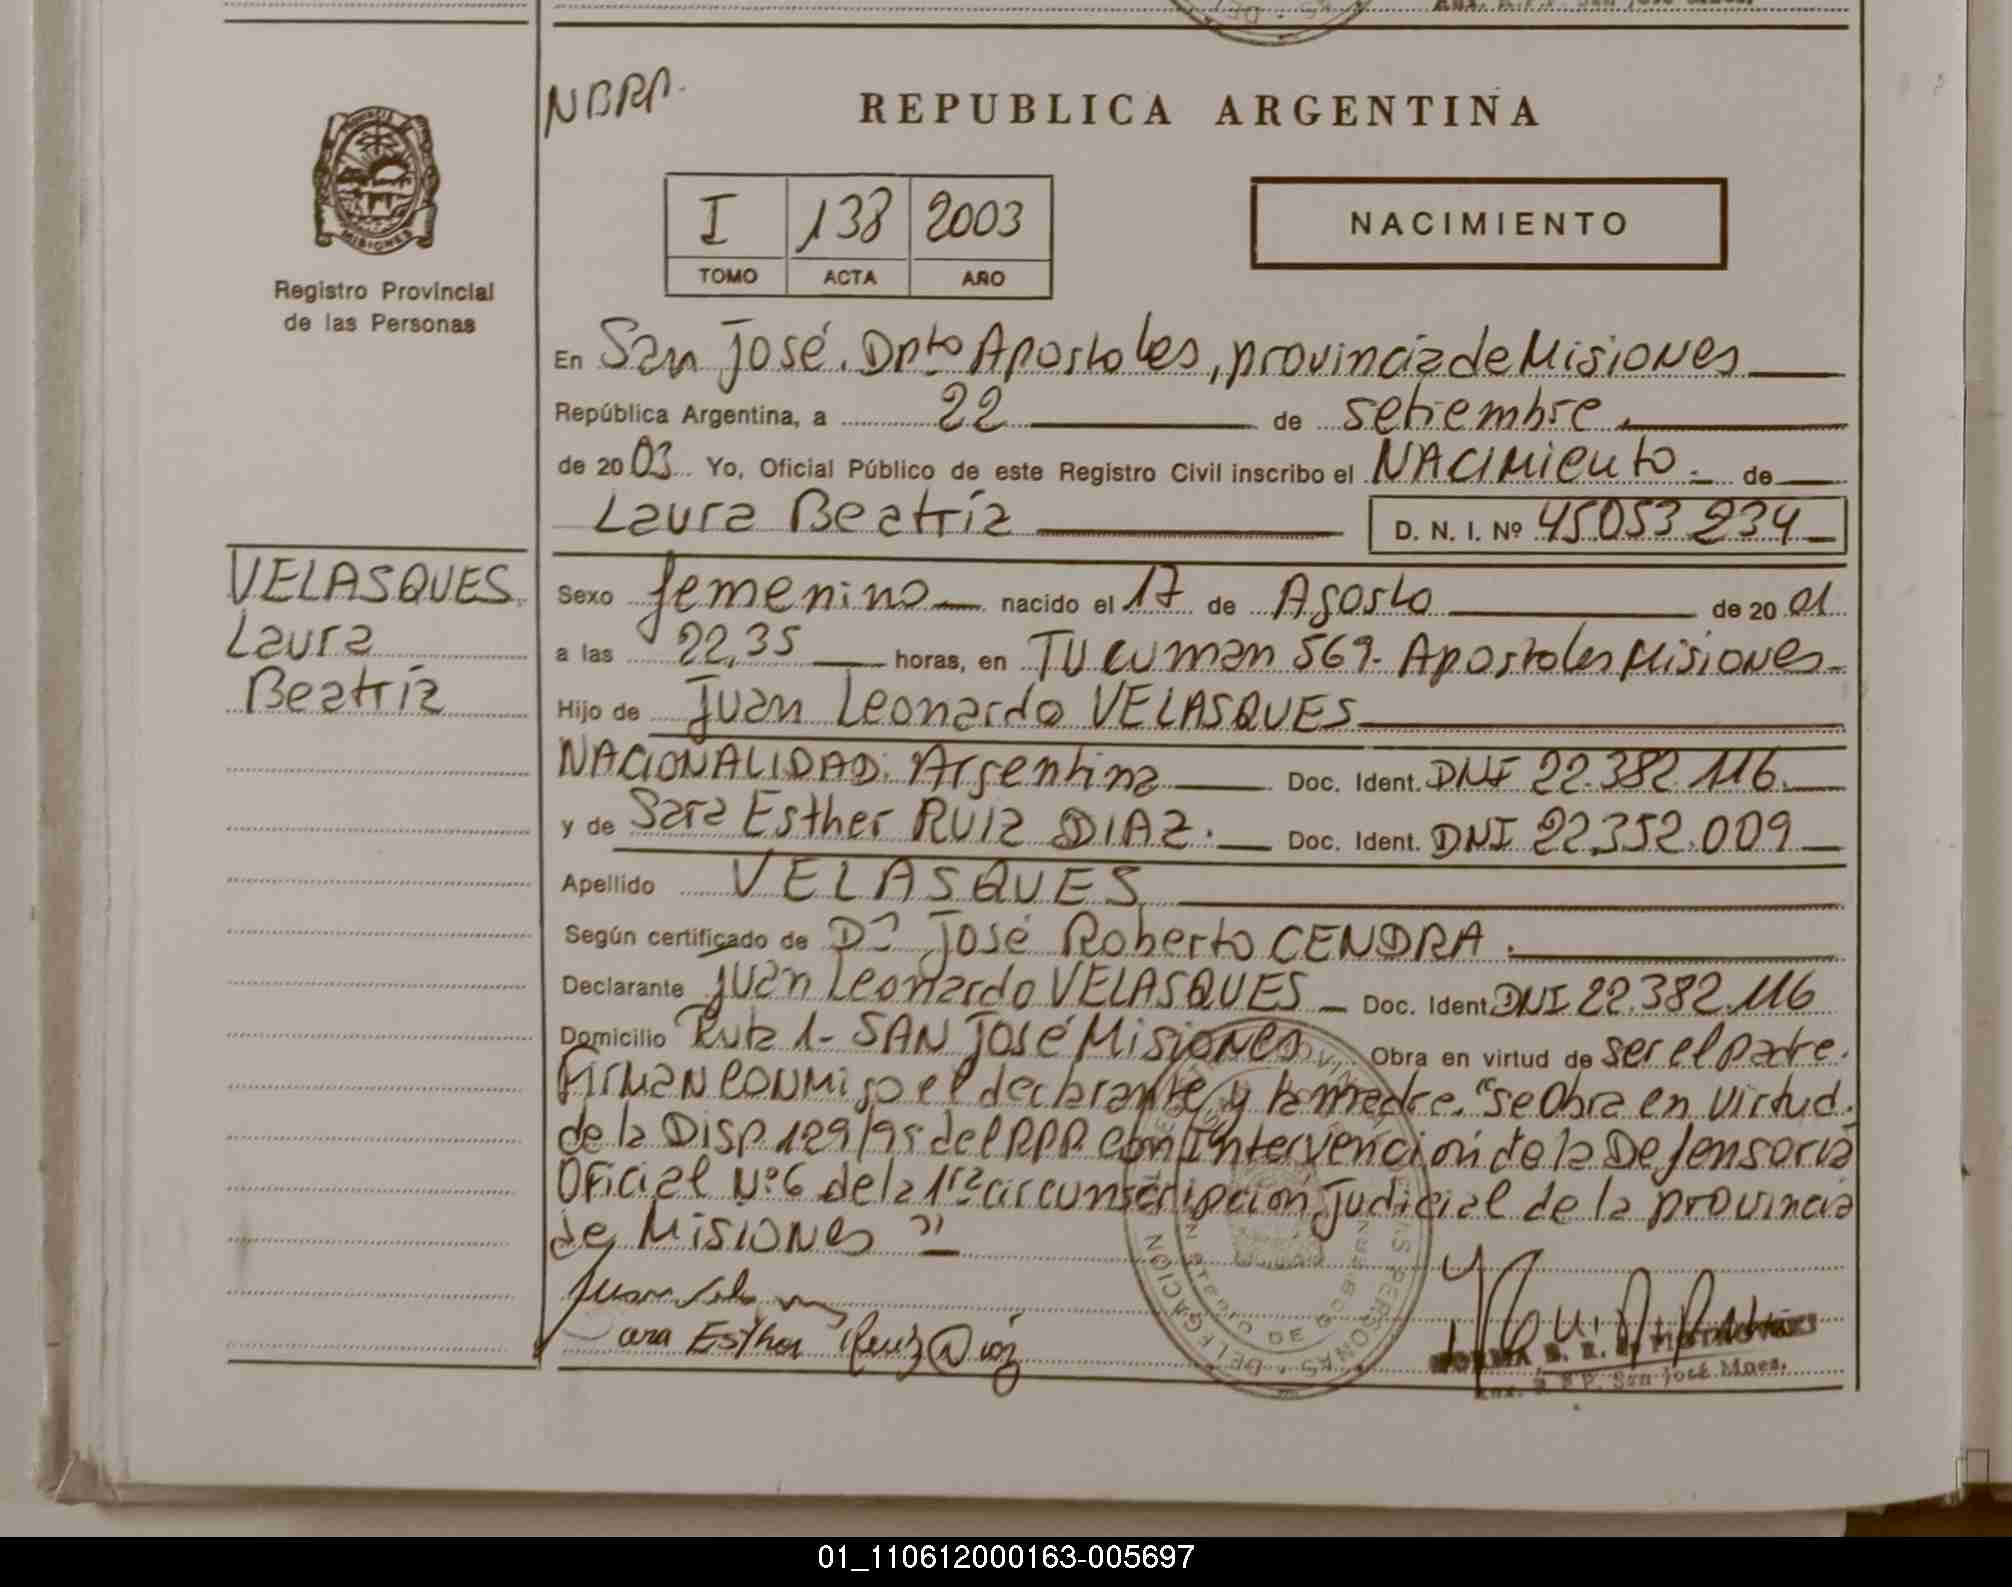 NBRP.
REPUBLICA ARGENTINA
I 138 2003
TOMO ACTA AÑO
NACIMIENTO
PROVINCIA DE
MISIONES
Registro Provincial
de las Personas
En San José. Dpto Apostoles, provincia de Misiones
República Argentina, a 22 de setiembre
de 2003 Yo, Oficial Público de este Registro Civil inscribo el NACIMIENTO. de
Laura Beatríz D. N. I. Nº 45053234
VELASQUES
Laura
Beatríz
Sexo femenino nacido el 17 de Agosto de 2001
a las 22,35 horas, en Tucuman 569- Apostoles Misiones
Hijo de Juan Leonardo VELASQUES
NACIONALIDAD: Argentina Doc. Ident. DNI 22.382.116.
y de Sara Esther RUIZ DIAZ. Doc. Ident. DNI 22.352.009
Apellido VELASQUES
Según certificado de Dr José Roberto CENDRA.
Declarante Juan Leonardo VELASQUES Doc. Ident. DNI 22.382.116
Domicilio Ruta 1- SAN José Misiones Obra en virtud de ser el padre.
Firman conmigo el declarante y la madre. "se Obra en virtud
de la Disp 129/95 del RPP. con Intervención de la Defensoría
Oficial Nº 6 de la 1ra circunscripción Judicial de la provincia
de Misiones"
Sara Esther Ruiz Diaz
DELEGACION
PERSONAS
DE GOBIERN
NORMA B. R.
Aux. R. P. P. San José Mnes.
01_110612000163-005697